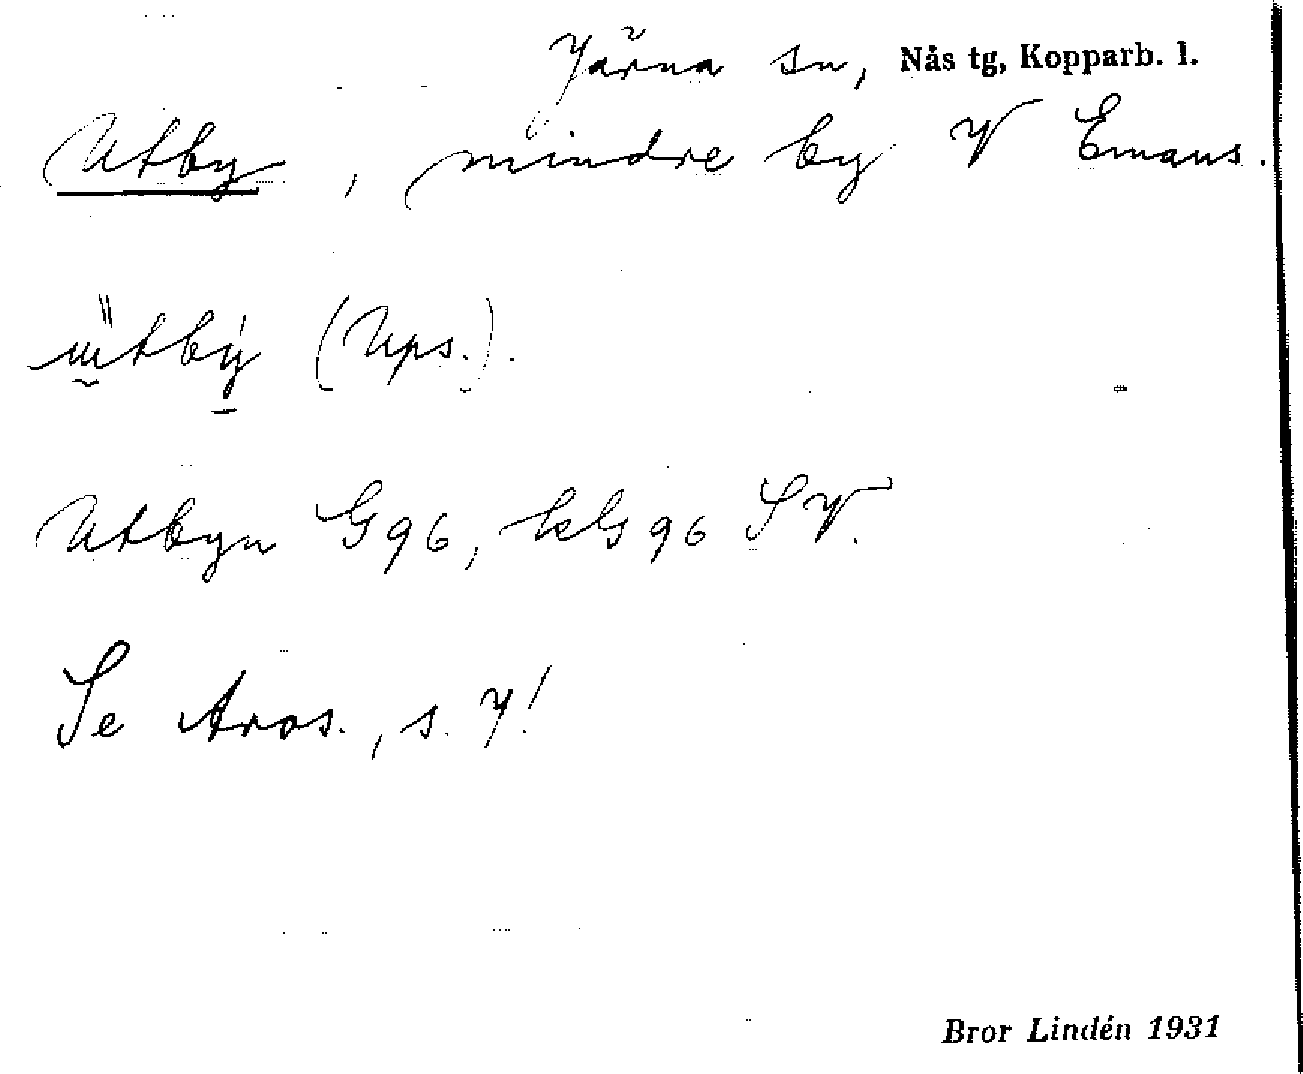 Järna sn, Nås tg, Kopparb. l.
Utby, mindre by V Emaus.
(Ups.).
Utbyn G96, kG96 SV.
Se Aros., s. 7!
Bror Lindén 1931